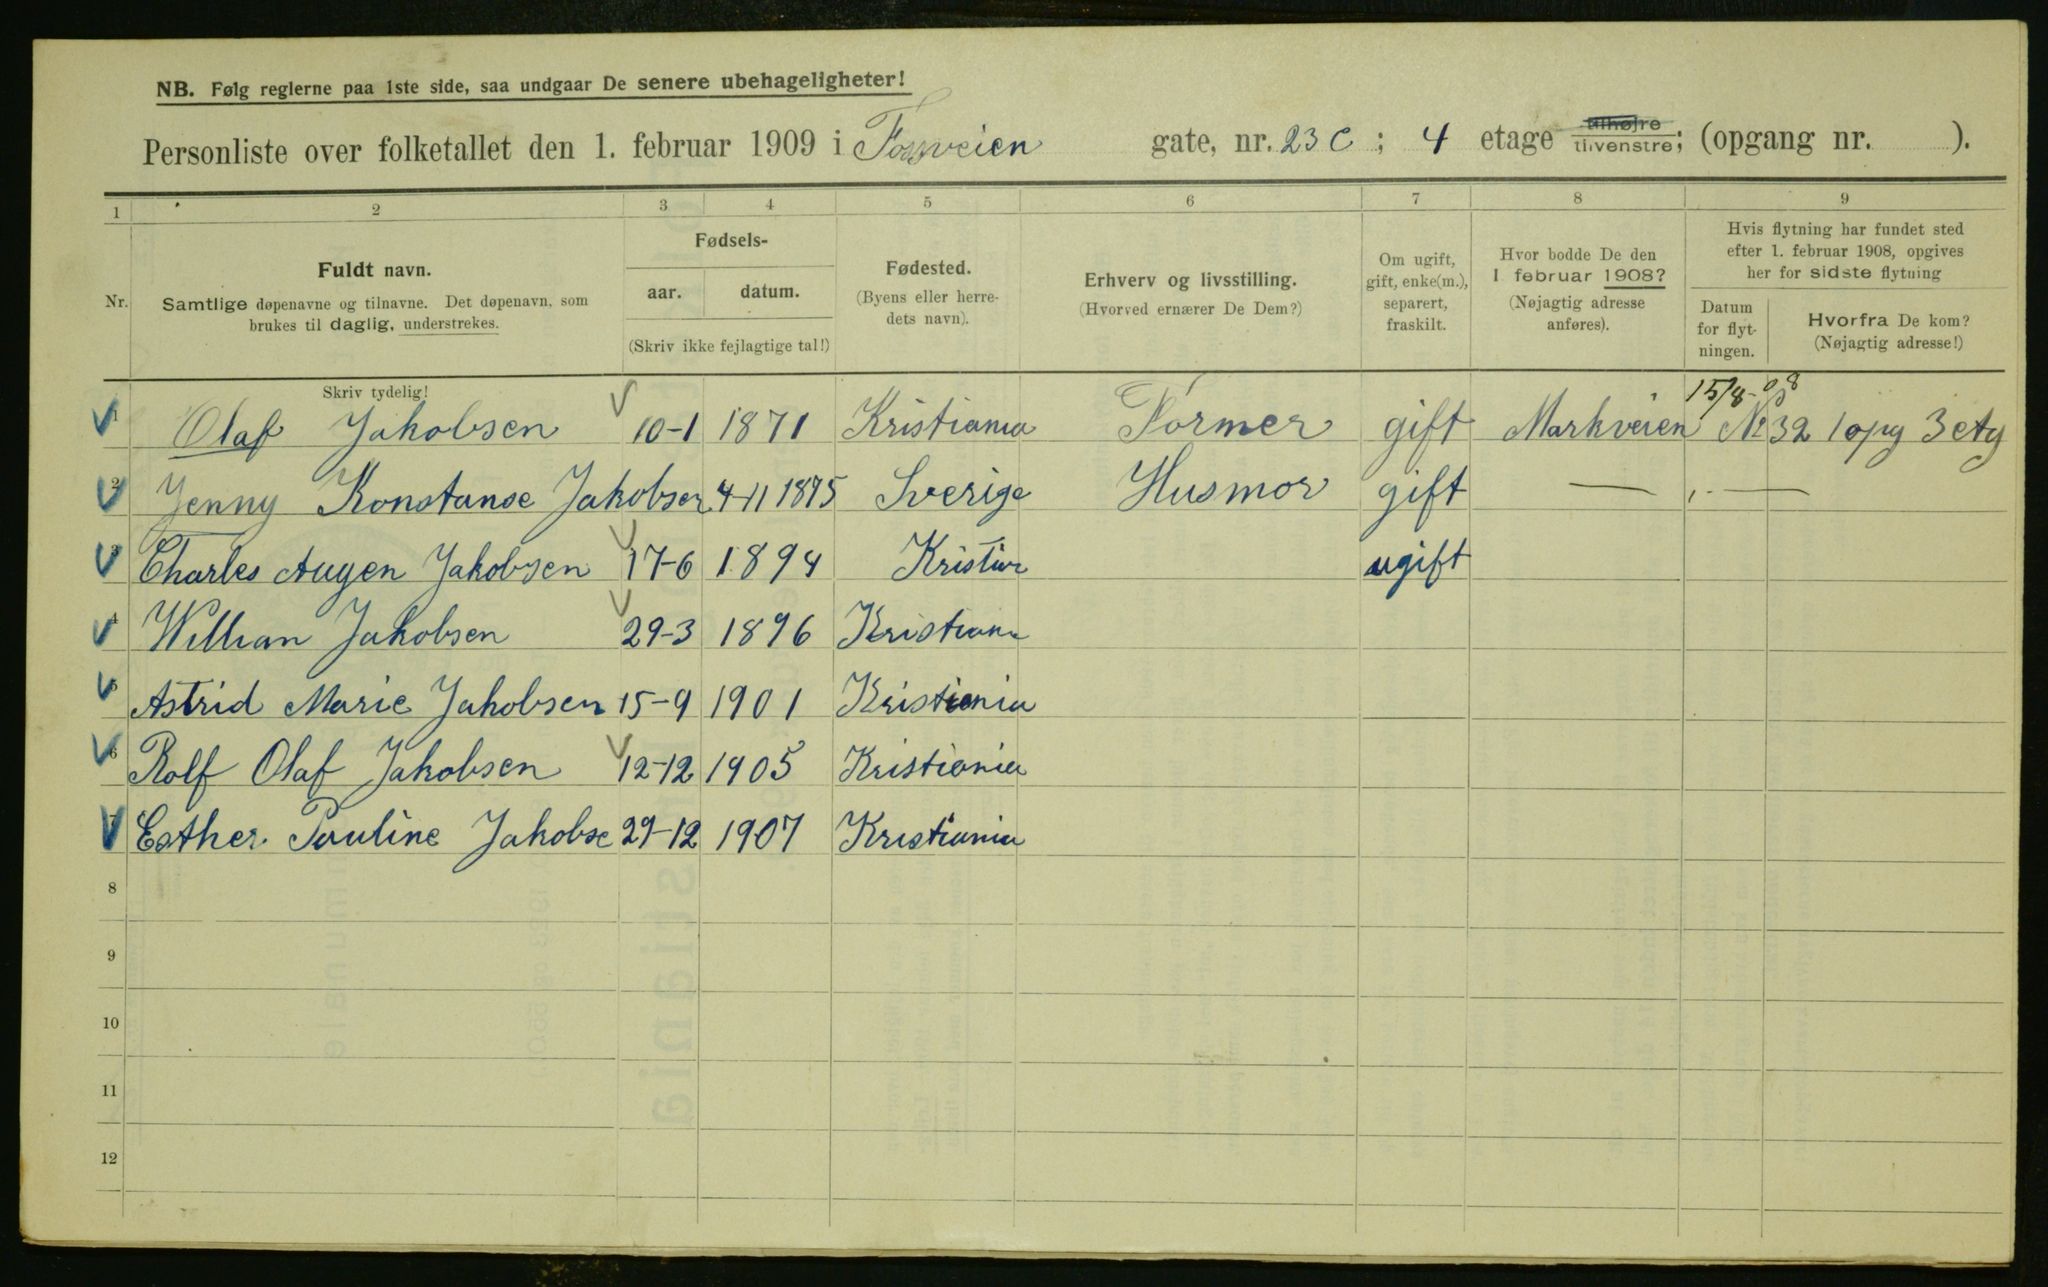 NB. Følg reglerne paa 1ste side, saa undgaar De senere ubehageligheter!
Personliste over folketallet den 1. februar 1909 i Fossveien gate, nr. 23 C ; 4 etage tilhøjre tilvenstre; (opgang nr. ).
1 2 3 4 5 6 7 8 9
Nr.
Fuldt navn.
Samtlige døpenavne og tilnavne. Det døpenavn, som
brukes til daglig, understrekes.
Skriv tydelig!
Fødsels-
aar. datum.
(Skriv ikke fejlagtige tal!)
Fødested.
(Byens eller herre-
dets navn).
Erhverv og livsstilling.
(Hvorved ernærer De Dem?)
Om ugift,
gift, enke(m.),
separert,
fraskilt.
Hvor bodde De den
1 februar 1908?
(Nøjagtig adresse
anføres).
Hvis flytning har fundet sted
efter 1. februar 1908, opgives
her for sidste flytning
Datum
for flyt-
ningen.
Hvorfra De kom?
(Nøjagtig adresse!)
15/8-08
1 Olaf Jakobsen 10-1 1871 Kristiania Former gift Markveien No 32 1 opg 3 etg
2 Jenny Konstanse Jakobsen 4-11 1875 Sverige Husmor gift — " —
3 Charles Augen Jakobsen 17-6 1894 Kristia ugift
4 Willian Jakobsen 29-3 1896 Kristiana
5 Astrid Marie Jakobsen 15-9 1901 Kristiania
6 Rolf Olaf Jakobsen 12-12 1905 Kristiania
7 Esther Pauline Jakobse 29-12 1907 Kristiania
8
9
10
11
12